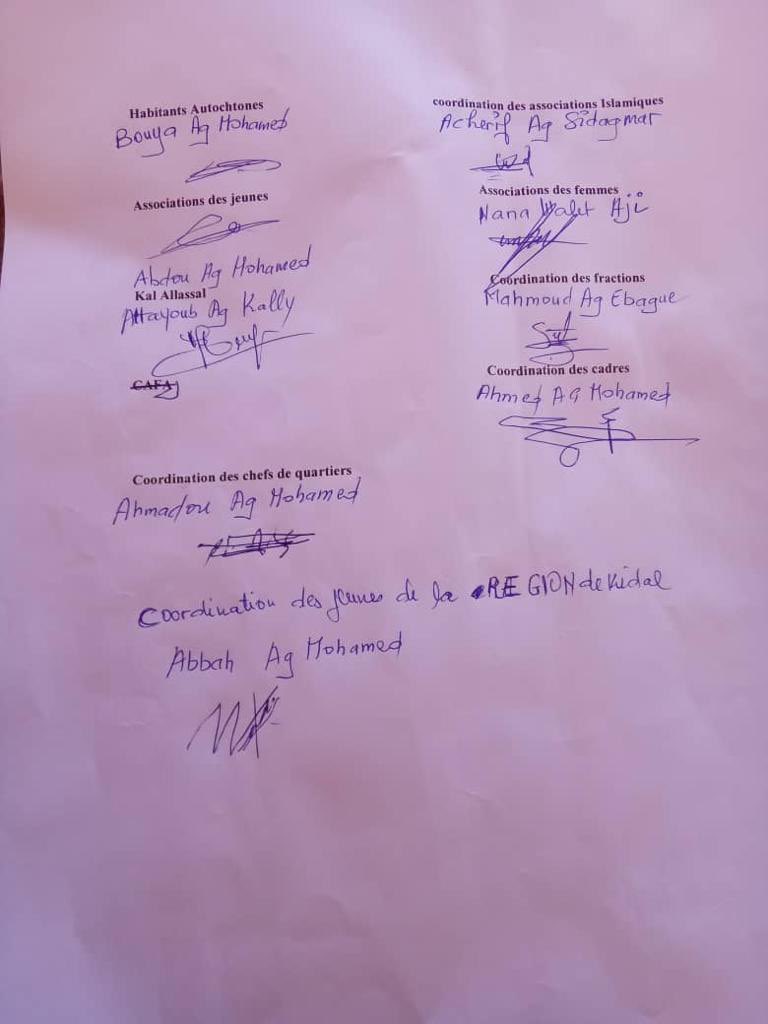 Habitants Autochtones
Bouya Ag Mohamed
Associations des jeunes
Abdou Ag Mohamed
Kal Allassal
Attayoub Ag Kally
CAFA
coordination des associations Islamiques
Acherif Ag Sidagmar
Associations des femmes
Nana Walet Aji
Coordination des fractions
Mahmoud Ag Ebague
Coordination des cadres
Ahmed AG Mohamed
Coordination des chefs de quartiers
Ahmadou Ag Mohamed
Coordination des jeunes de la REGION de Kidal
Abbah Ag Mohamed